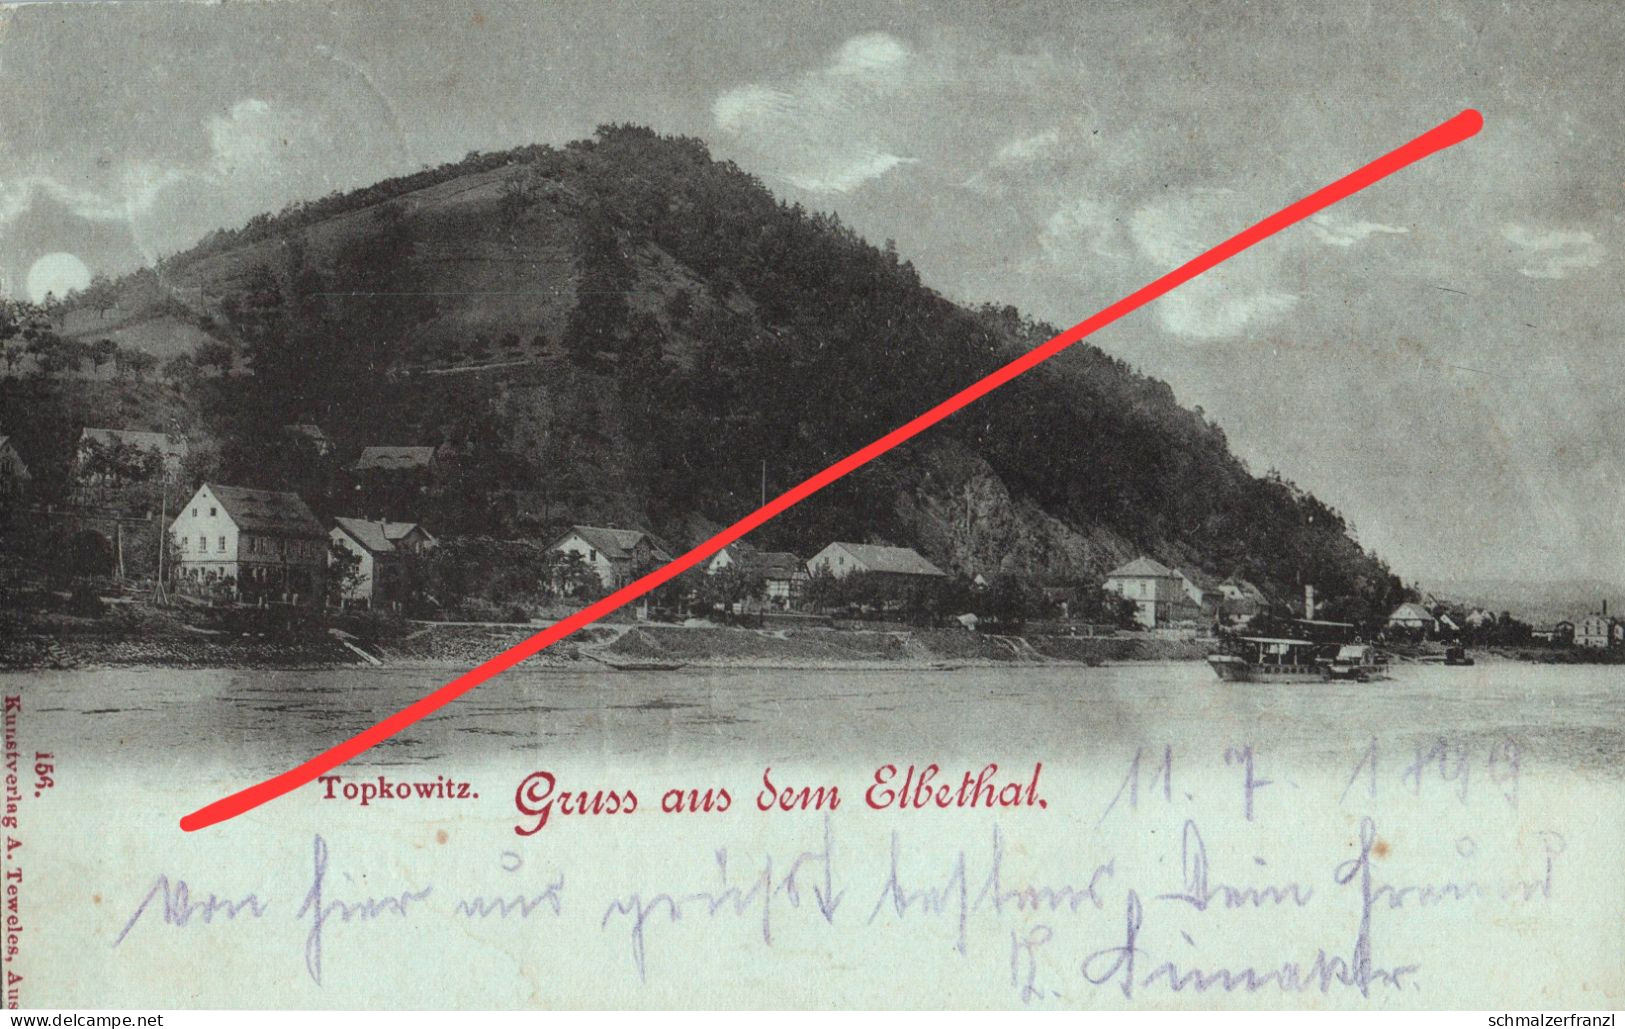 Topkowitz.
Gruss aus dem Elbethal.
11. 7. 1899
Von hier aus grüsst bestens Dein Freund
156.
Kunstverlag A. Teweles, Aus
www.delcampe.net
schmalzerfranzl